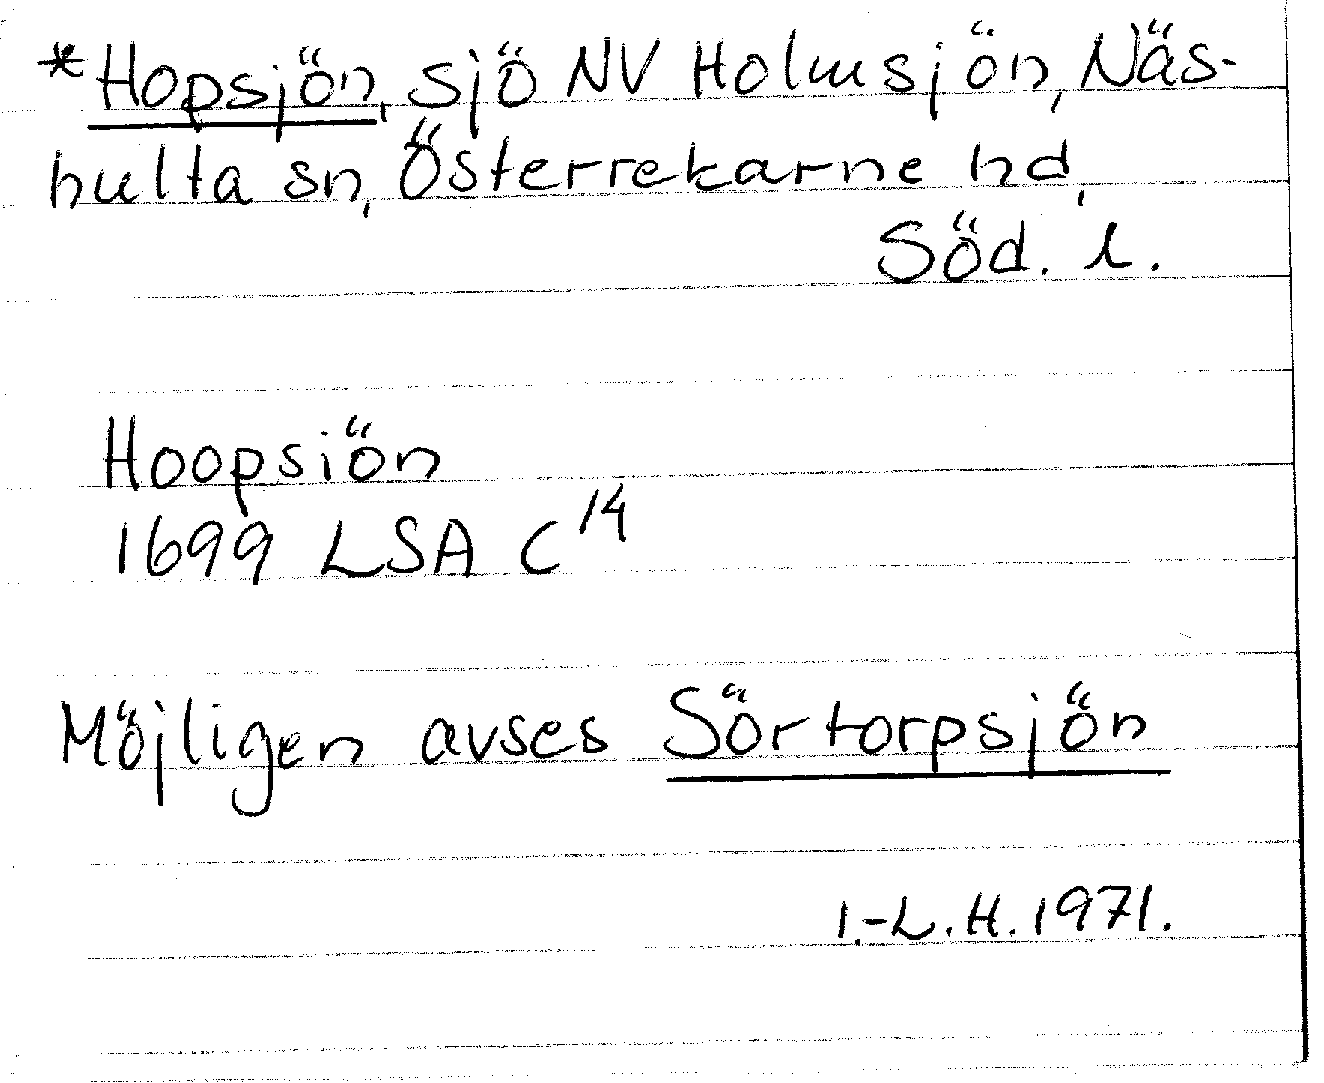 *Hopsjön, sjö NV Holmsjön, Näs-
hulta sn, Österrekarne hd,
Söd. l.
Hoopsiön
1699 LSA C 14
Möjligen avses Sörtorpsjön
I.-L.H. 1971.